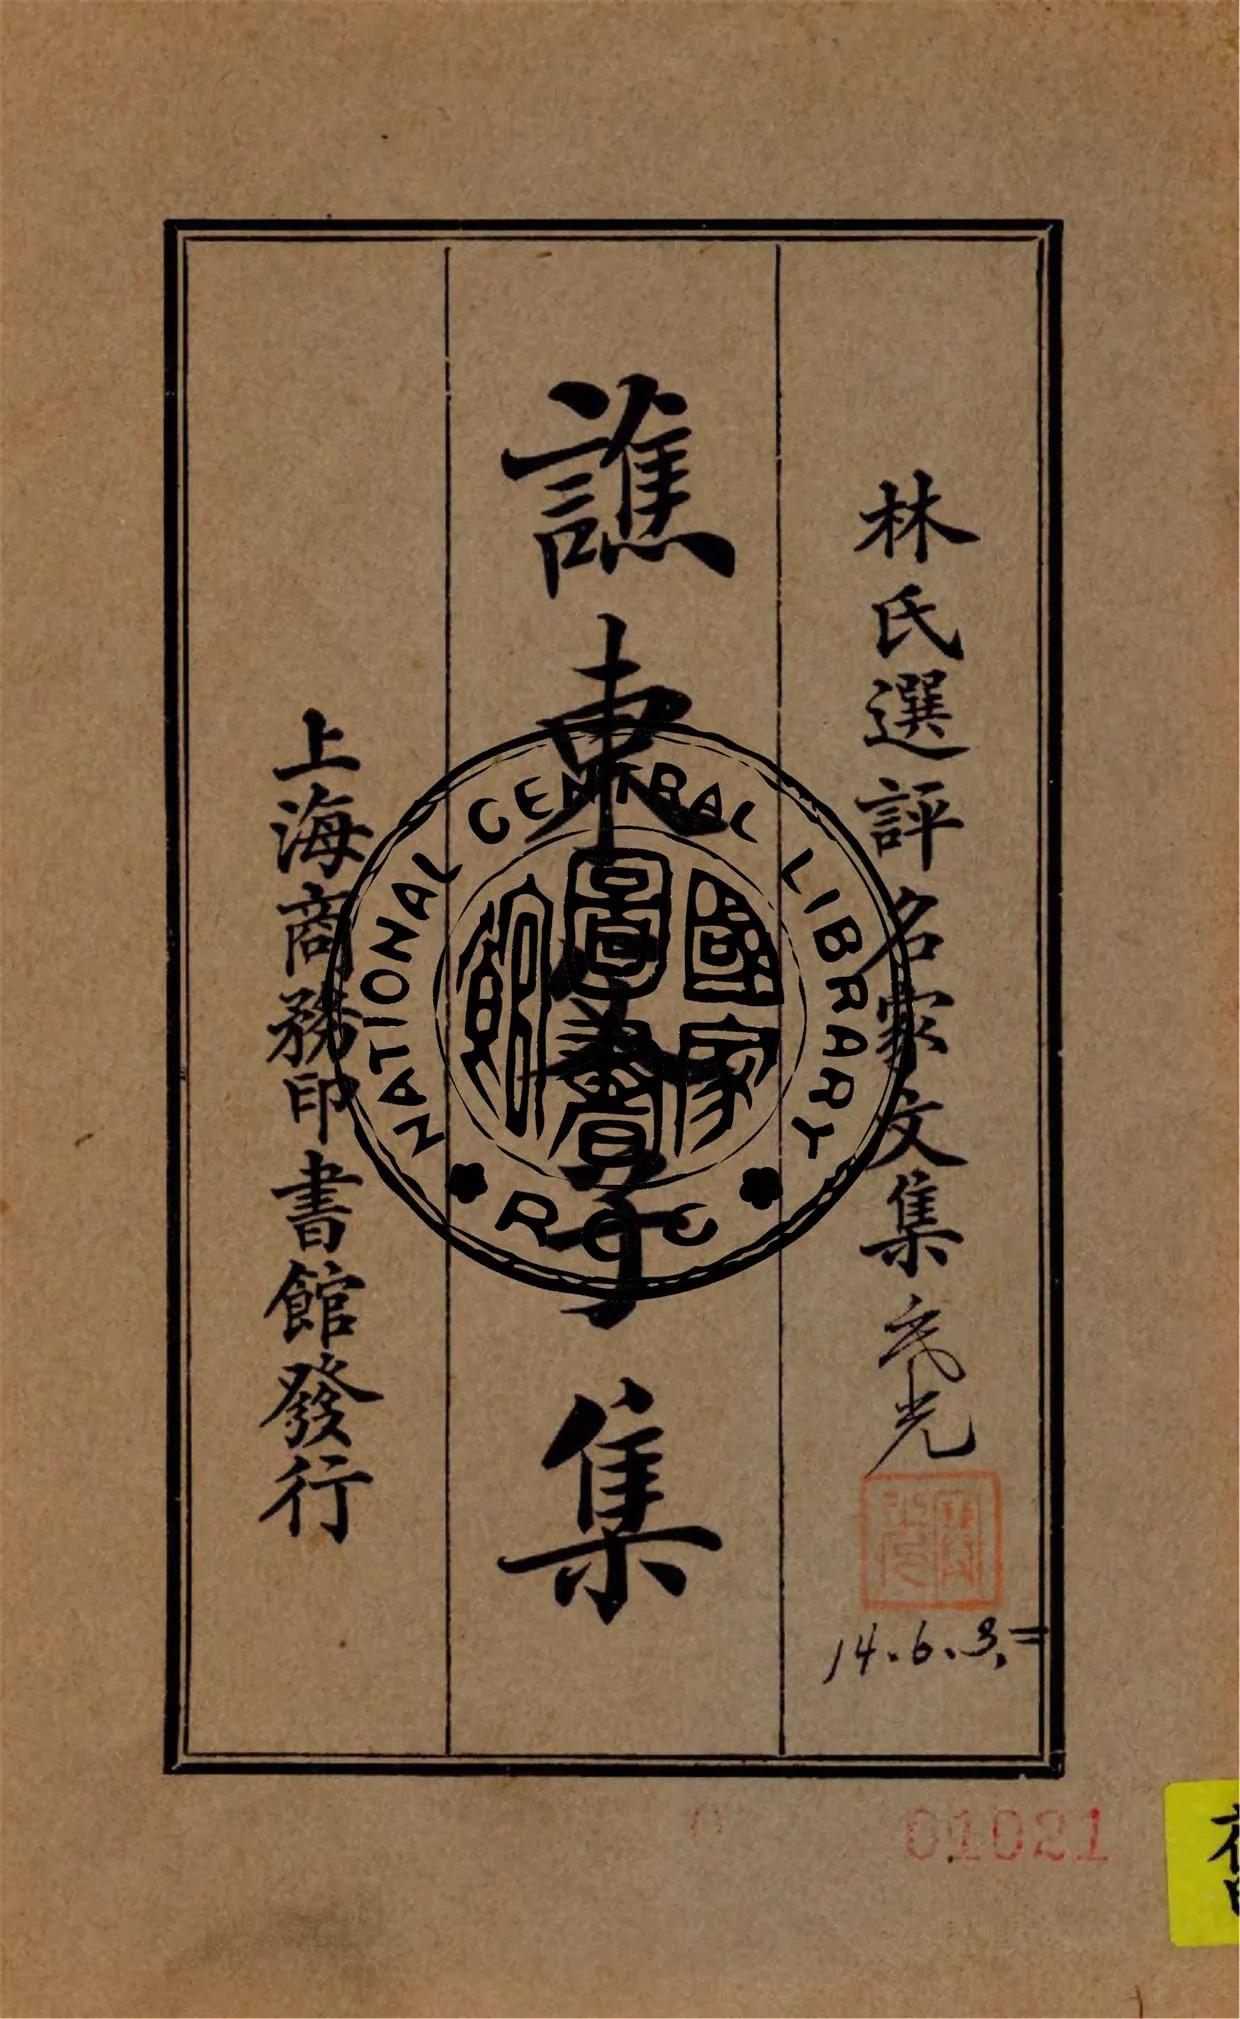 林氏選評名家文集
譙東父子集
上海商務印書館發行
14.6.3.=
01021
NATIONAL CENTRAL LIBRARY
ROC
國家圖書館